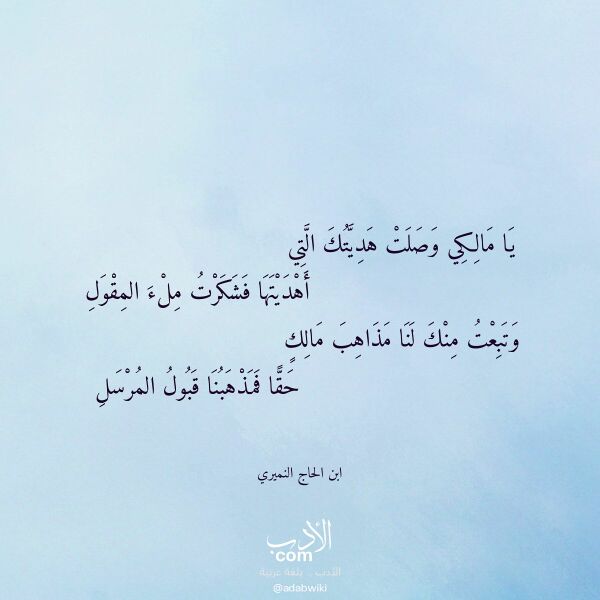 يَا مَالِكِي وَصَلَتْ هَدِيَّتُكَ الَّتِي
أَهْدَيْتَهَا فَشَكَرْتُ مِلْءَ المِقْوَلِ
وَتَبِعْتُ مِنْكَ لَنَا مَذَاهِبَ مَالِكٍ
حَقًّا فَمَذْهَبُنَا قَبُولُ المُرْسَلِ
ابن الحاج النميري
الأدب
com
الأدب .. بلغة عربية
@adabwiki